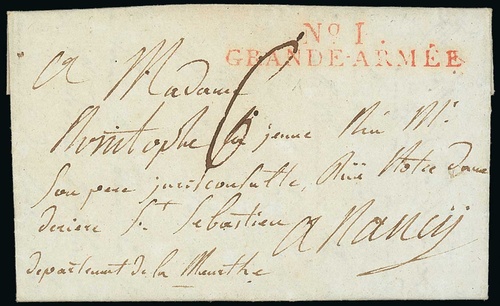 No 1.
GRANDE-ARMÉE
A Madame
6
jeune Mr.
son pere jurisconsulte, Rüe Notre dame
deriere St. Sebastien
a Nancÿ
departement de la Meurthe